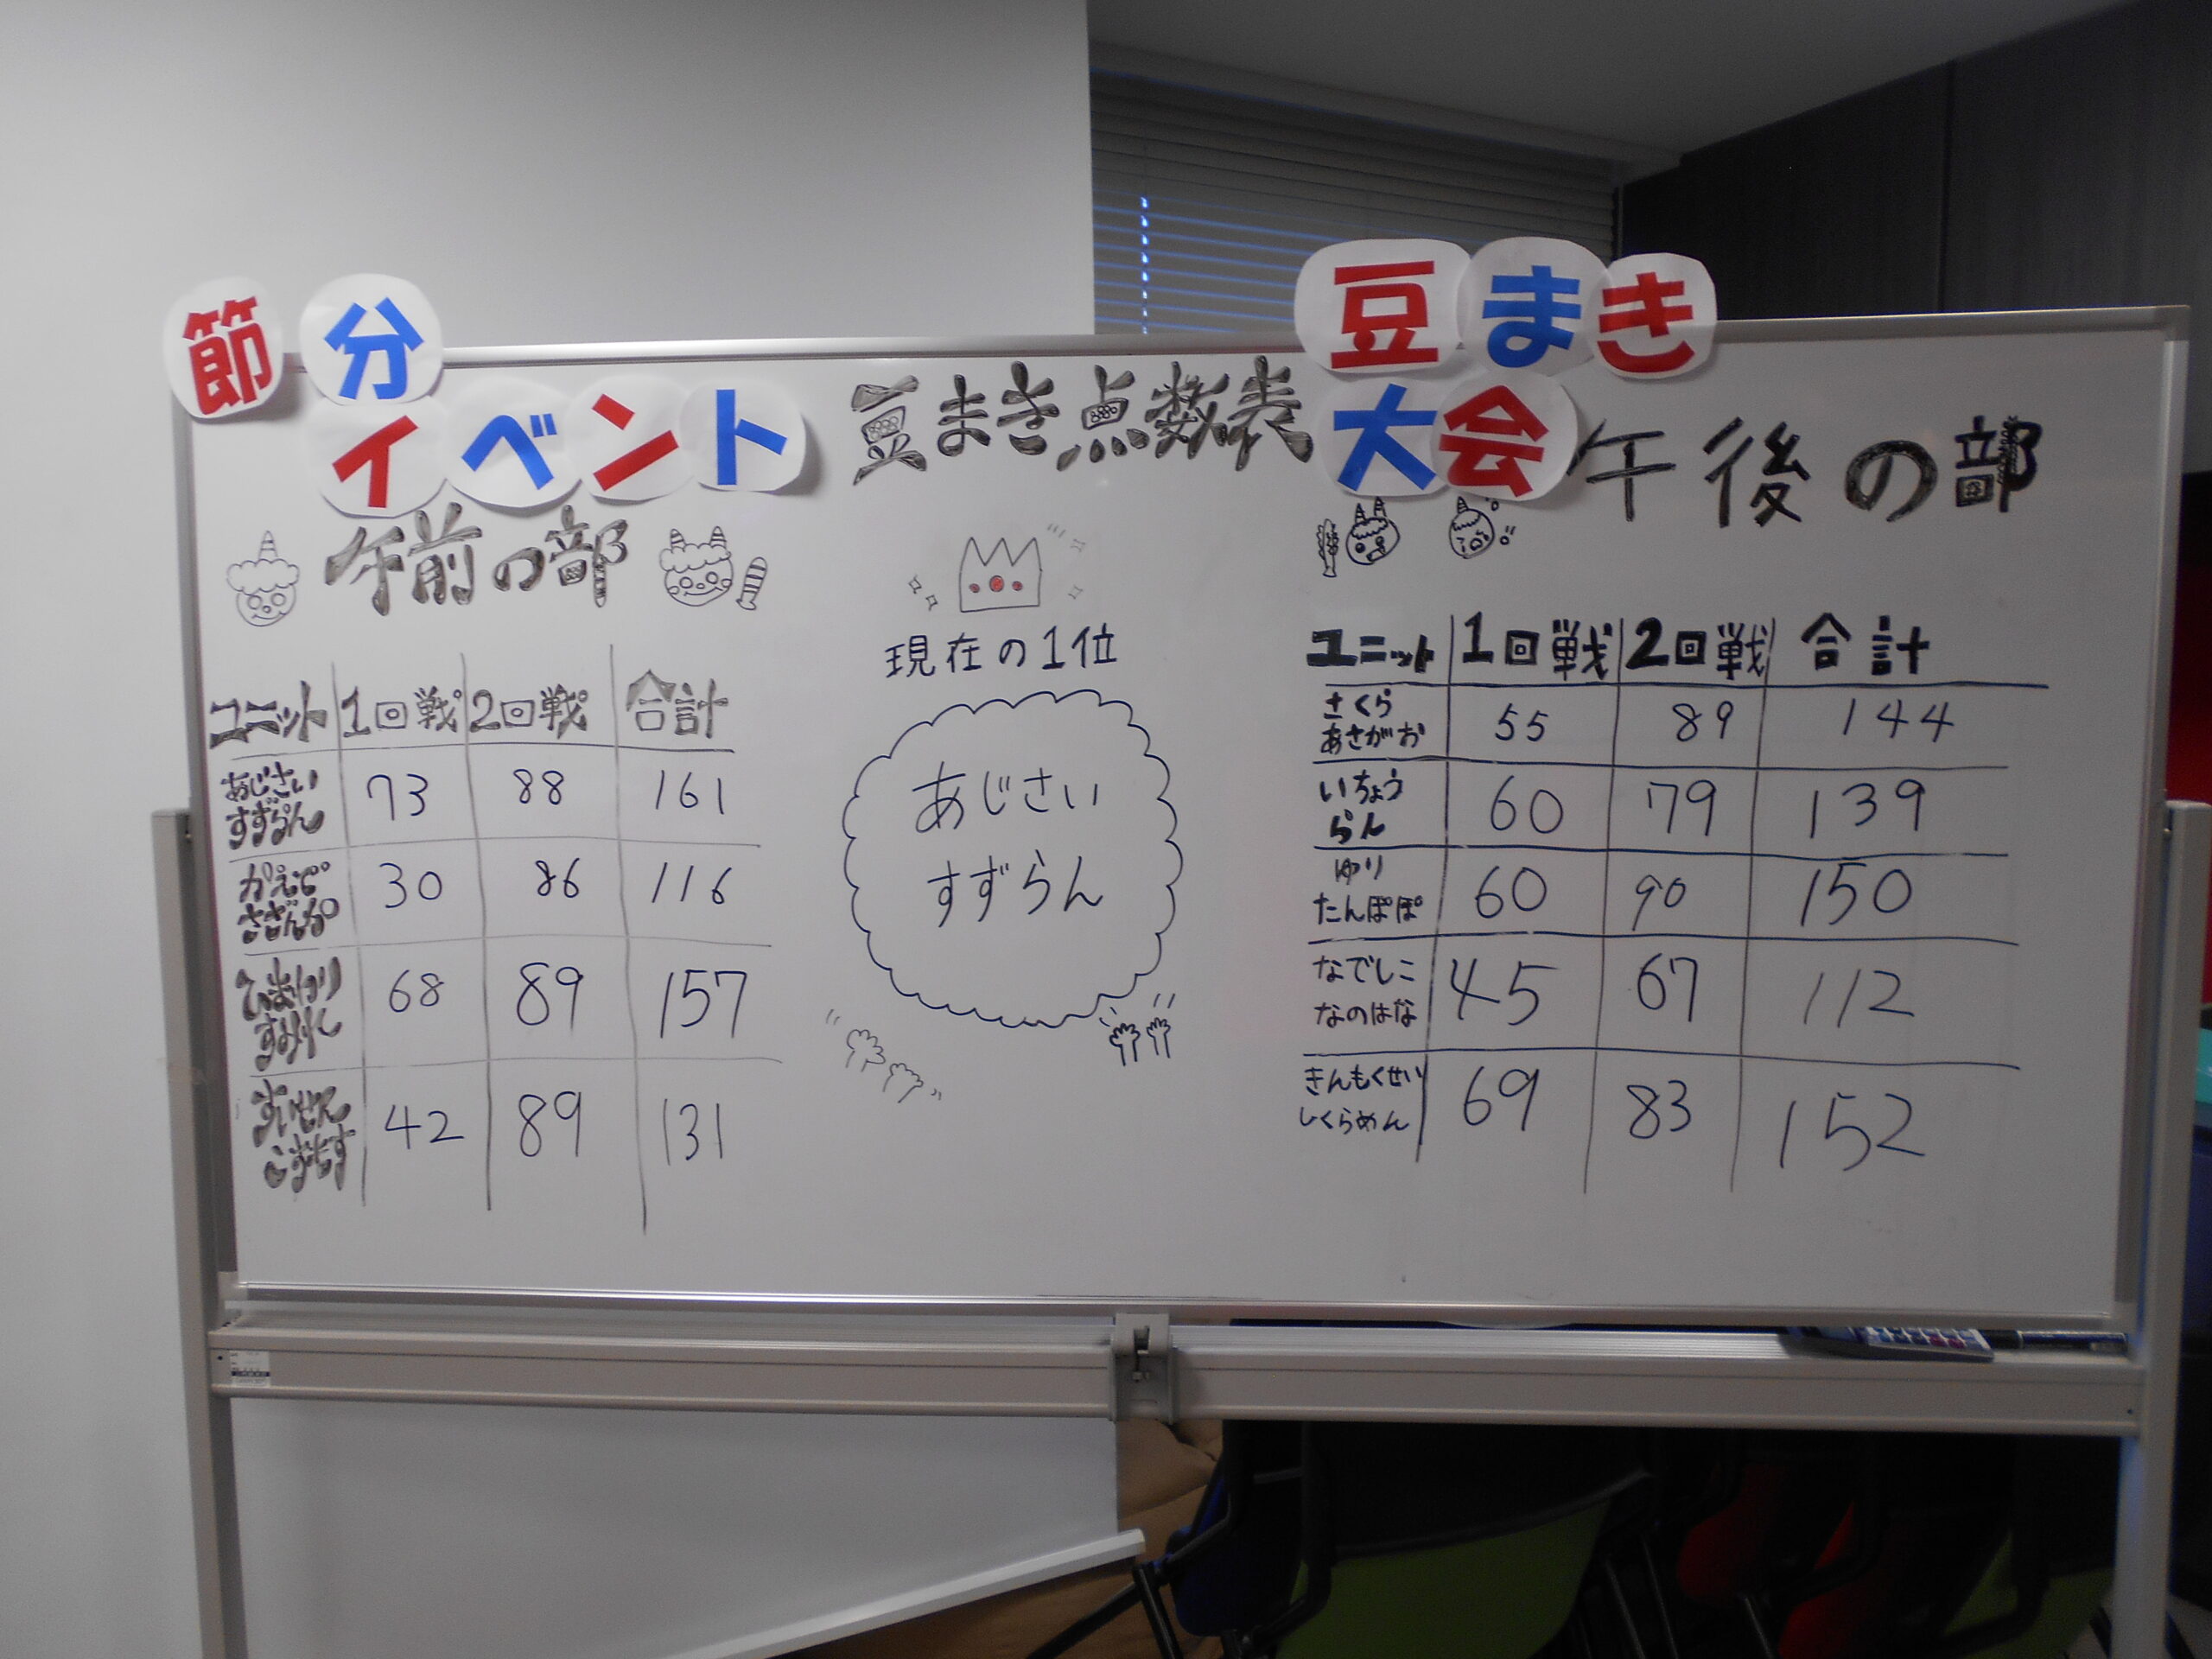 節分
イベント
豆まき点数表
豆まき
大会
午前の部
ユニット 1回戦 2回戦 合計
あじさい
すずらん 73 88 161
かえで
さざんか 30 86 116
ひまわり
すみれ 68 89 157
すいせん
こすもす 42 89 131
現在の1位
あじさい
すずらん
午後の部
ユニット 1回戦 2回戦 合計
さくら
あさがお 55 89 144
いちょう
らん 60 79 139
ゆり
たんぽぽ 60 90 150
なでしこ
なのはな 45 67 112
きんもくせい
しくらめん 69 83 152